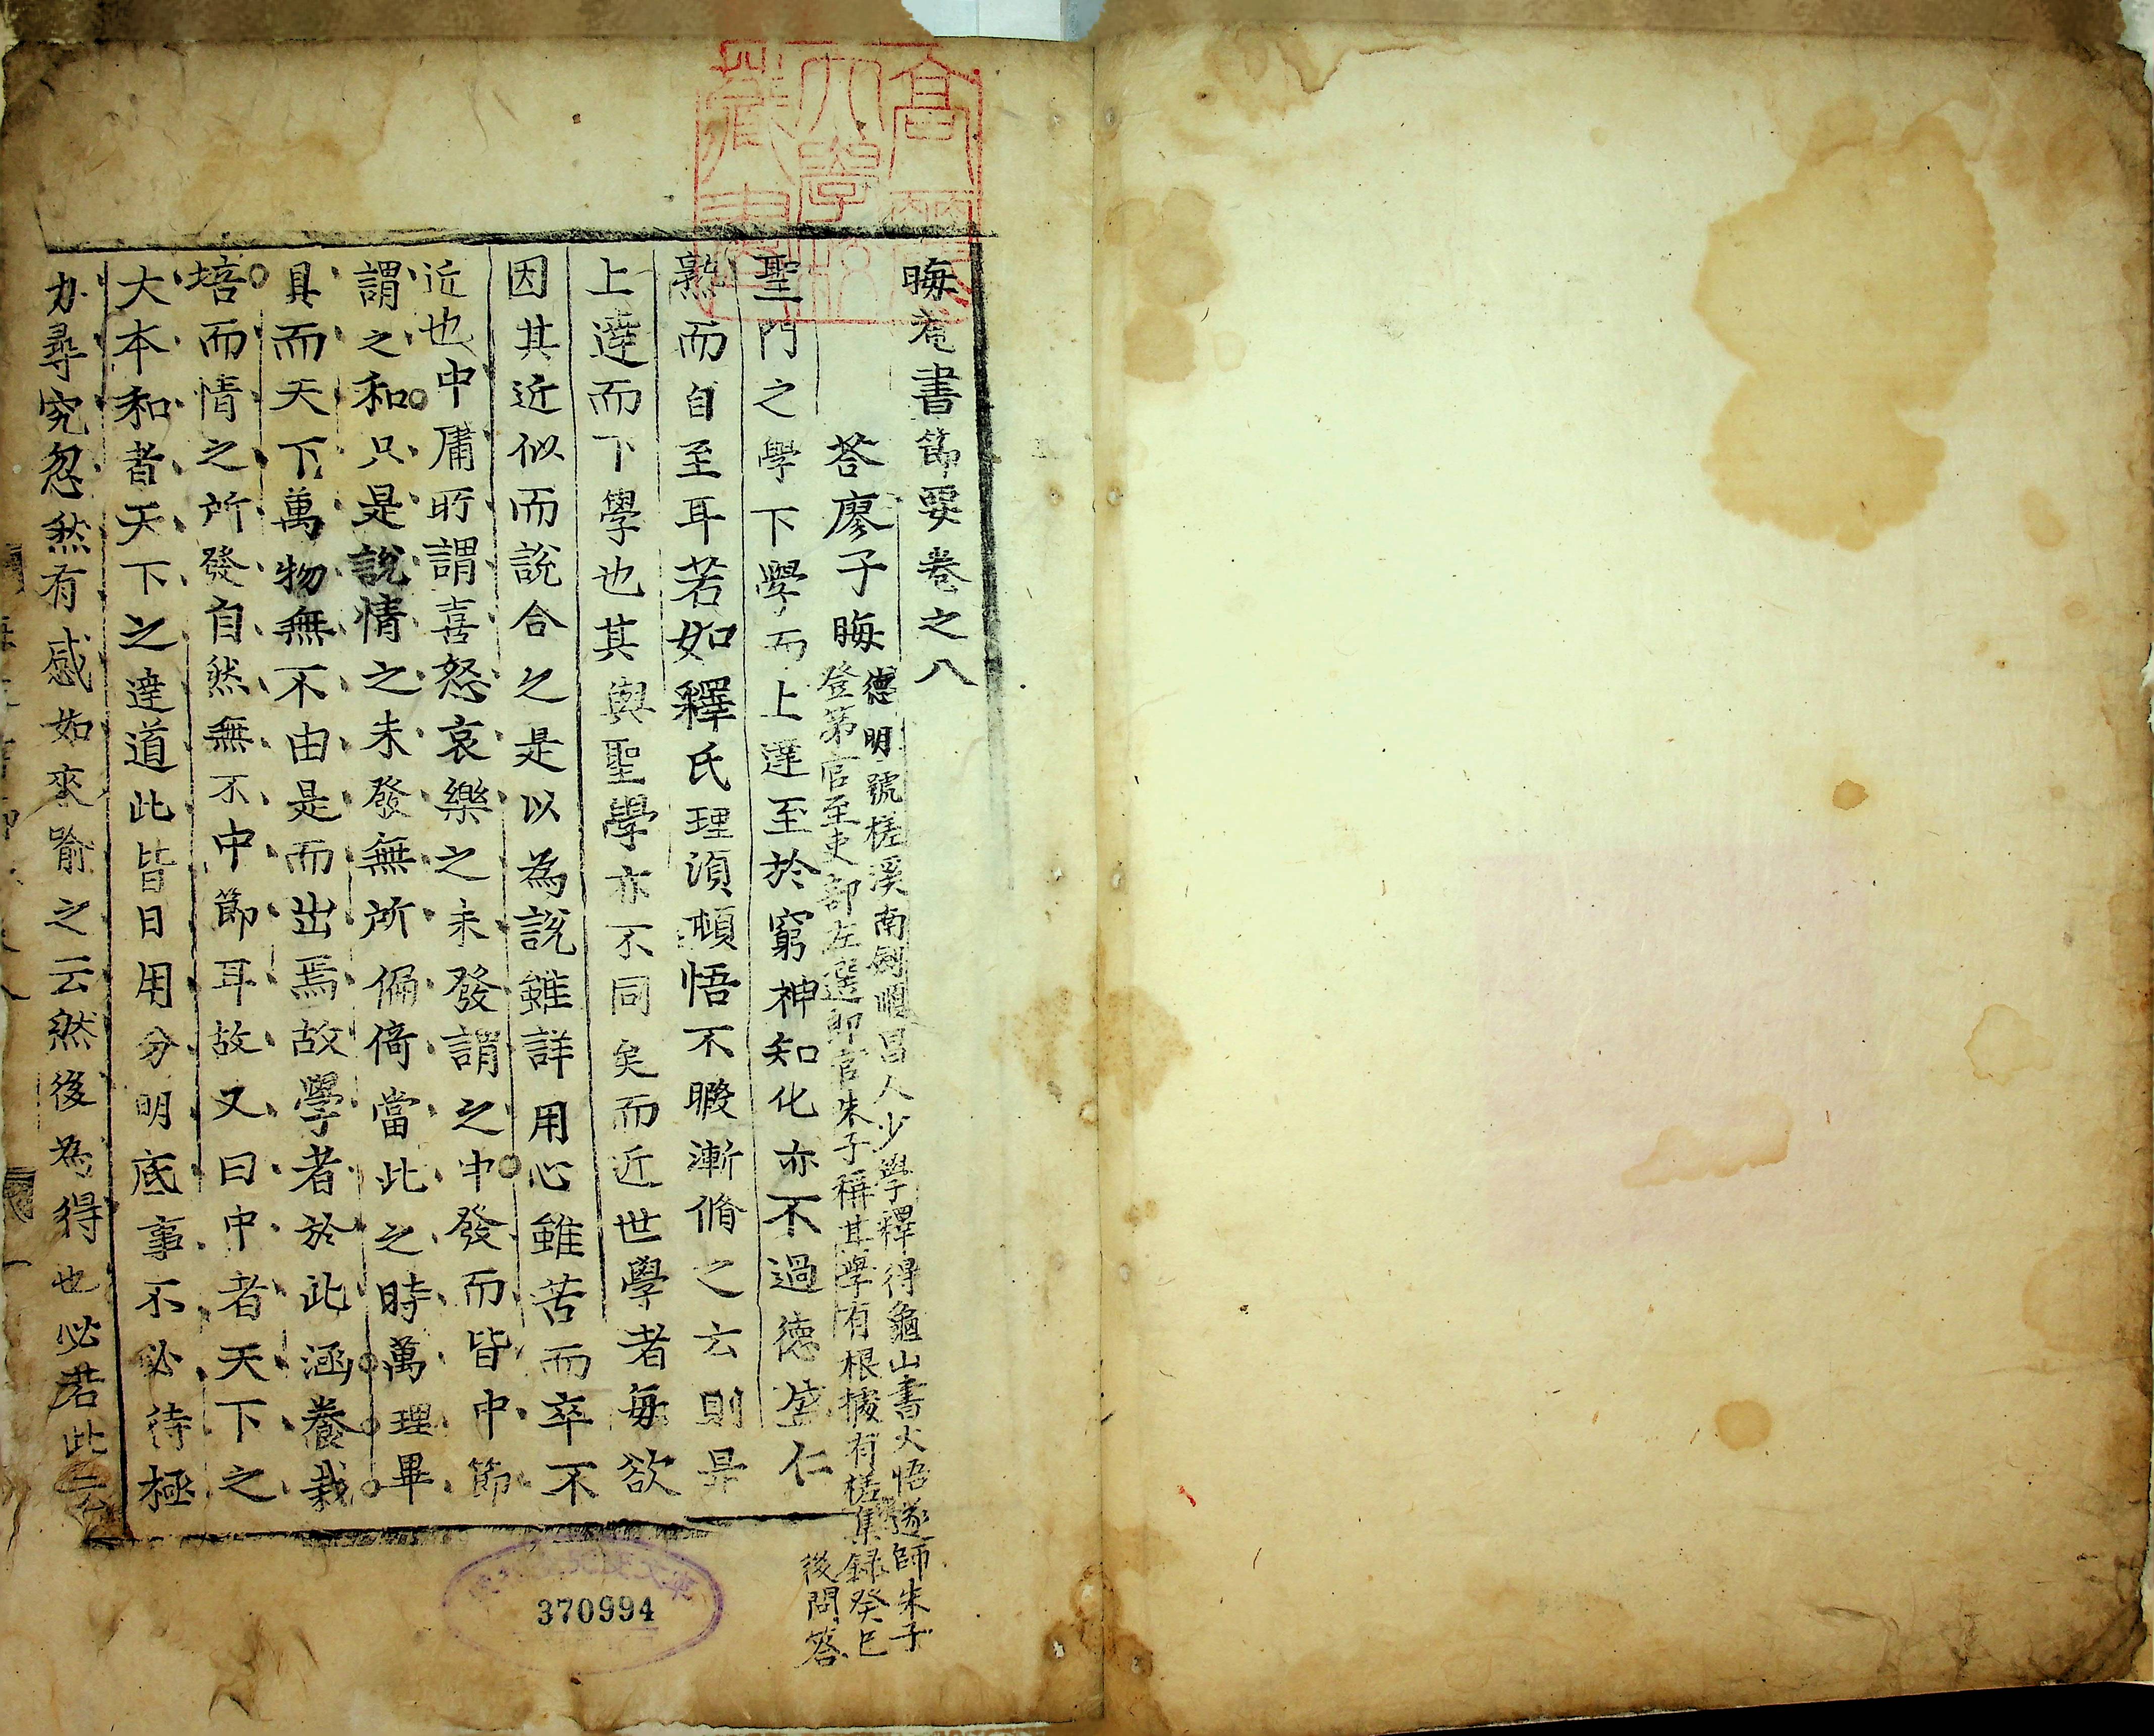 晦菴書節要卷之八
答廖子晦
德明號槎溪南劍順昌人少學釋得龜山書大悟遂師朱子
登第官至吏部左選郎官朱子稱其學有根據有槎集錄癸巳
後問答
聖門之學下學而上達至於窮神知化亦不過德盛仁
熟而自至耳若如釋氏理湏頓悟不暇漸脩之云則是
上達而下學也其與聖學亦不同矣而近世學者每欲
因其近似而說合之是以為說雖詳用心雖苦而卒不
近也中庸所謂喜怒哀樂之未發謂之中發而皆中節
謂之和只是說情之未發無所偏倚當此之時萬理畢
具而天下萬物無不由是而出焉故學者於此涵養栽
培而情之所發自然無不中節耳故又曰中者天下之
大本和者天下之達道此皆日用分明底事不必待極
力尋究忽然有感如來喻之云然後為得也必若此云
高麗大學校藏書
370994